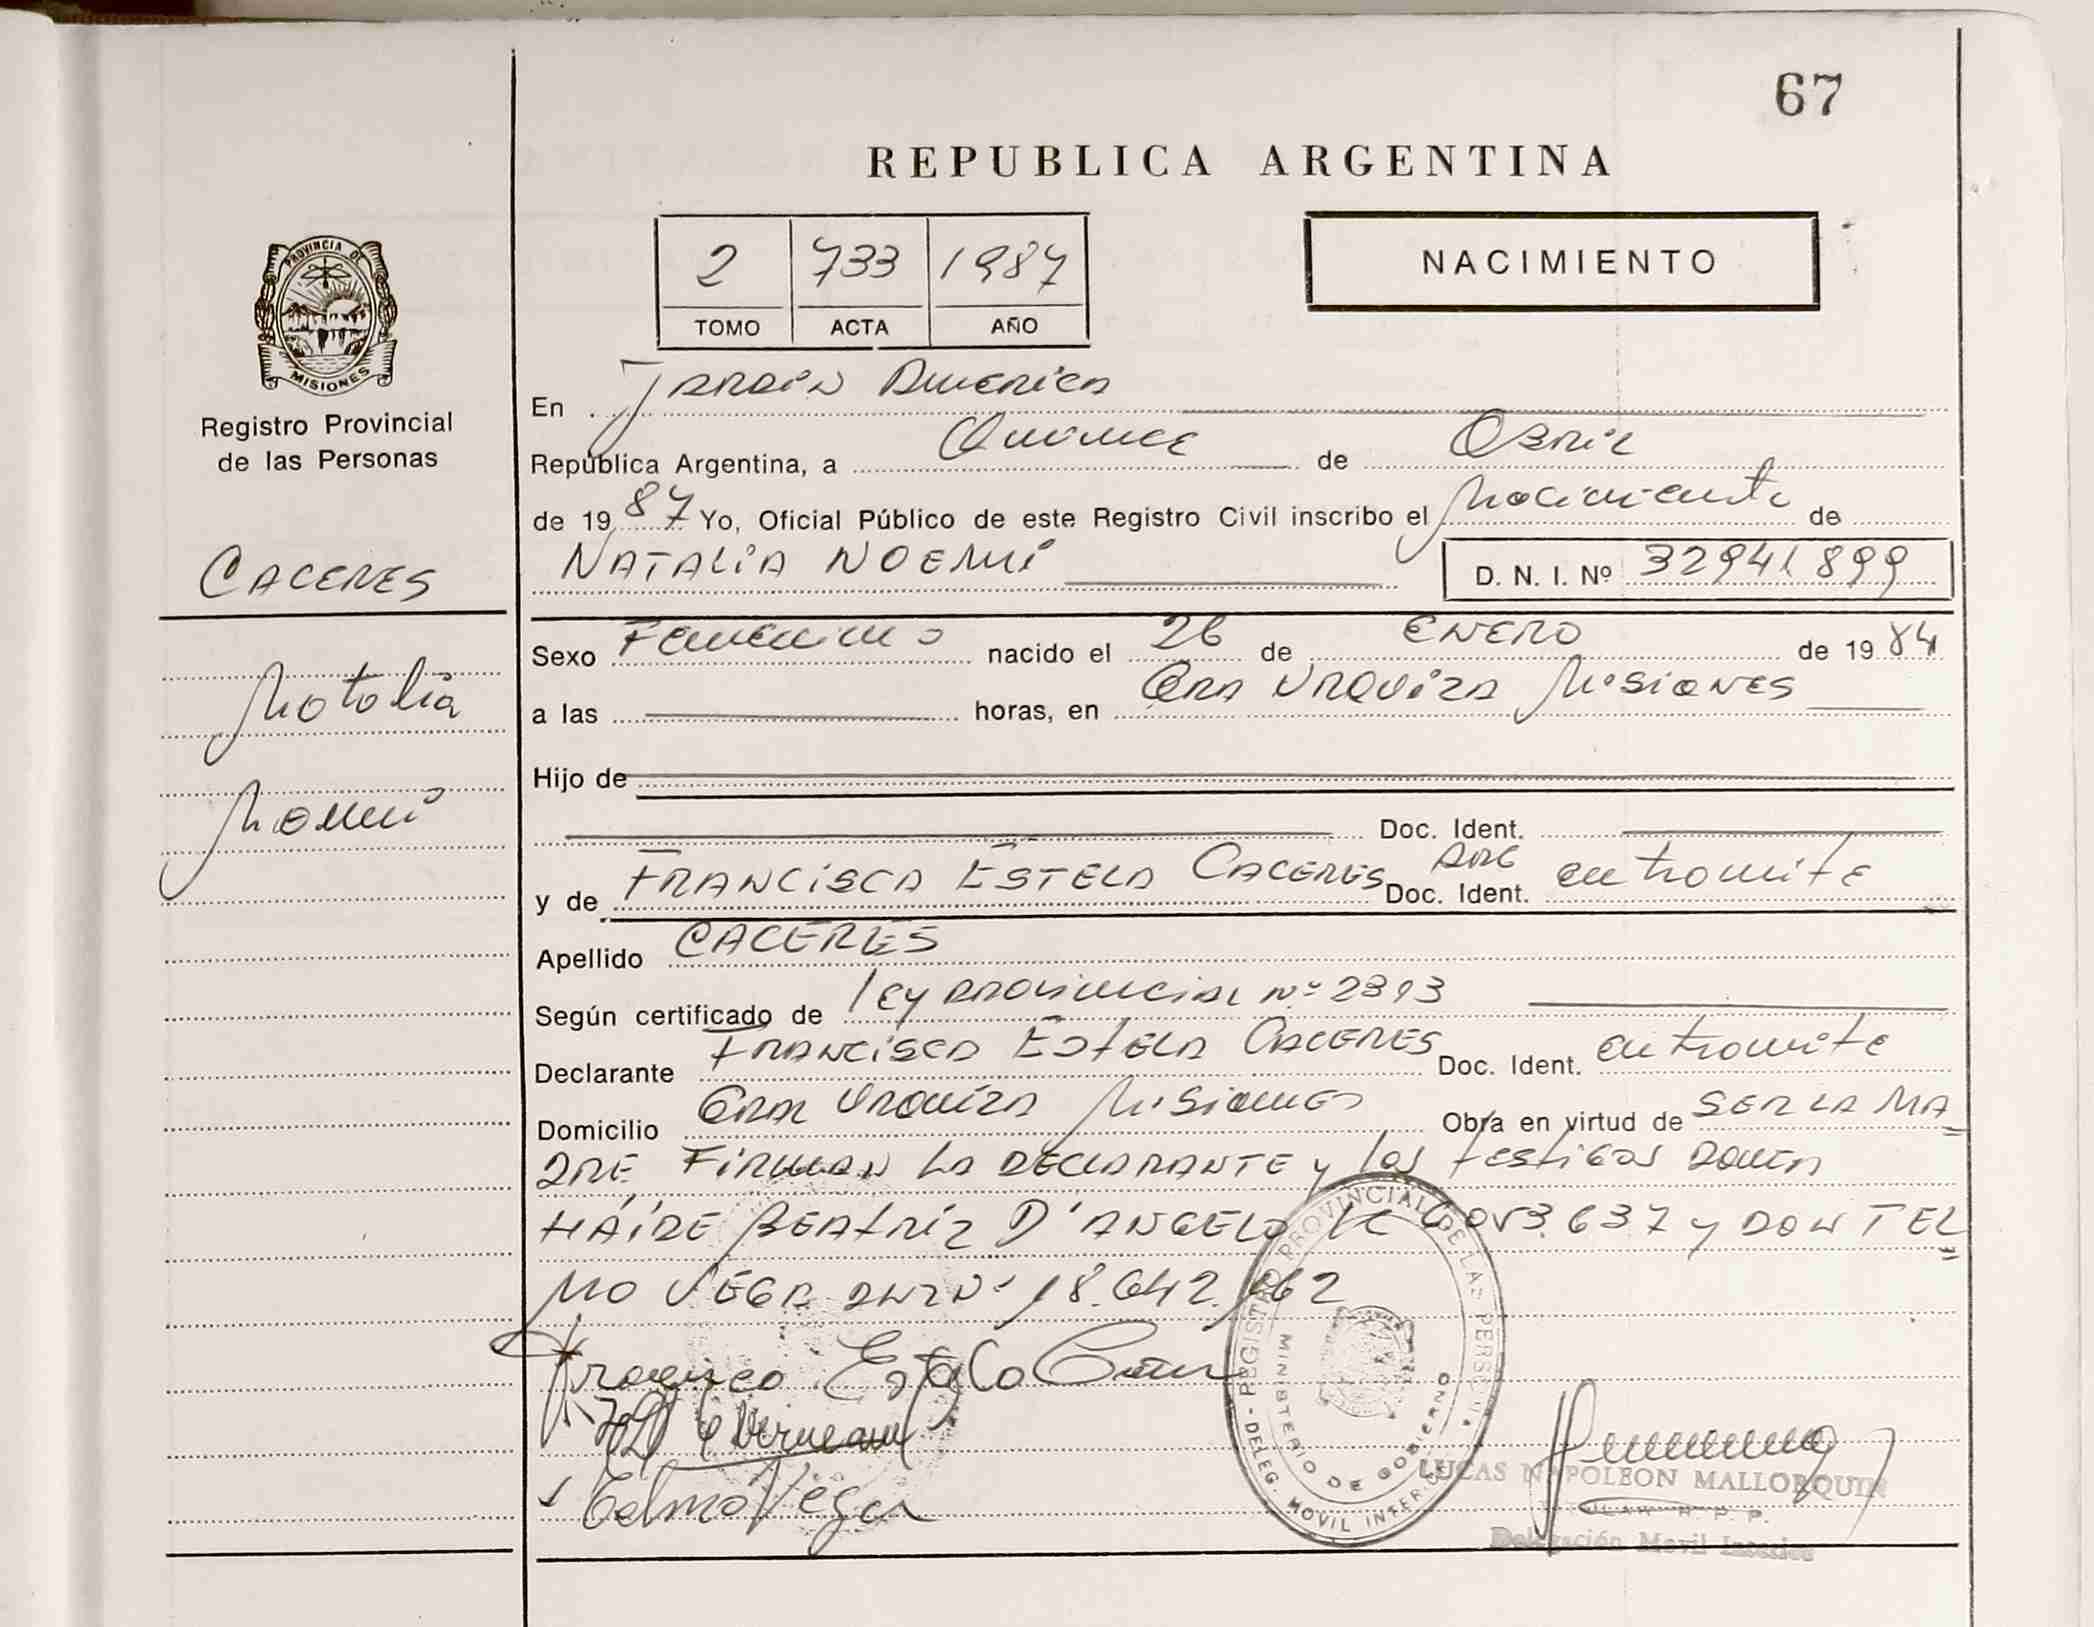 67
REPUBLICA ARGENTINA
2 733 1987
TOMO ACTA AÑO
NACIMIENTO
PROVINCIA DE
MISIONES
Registro Provincial
de las Personas
CACERES
Natalia
Noemí
En Jardin America
República Argentina, a Quince de Abril
de 1987 Yo, Oficial Público de este Registro Civil inscribo el Nacimiento de
NATALIA NOEMI D. N. I. Nº 32941899
Sexo Femenino nacido el 26 de ENERO de 1984
a las horas, en Gra Urquiza Misiones
Hijo de
Doc. Ident.
y de FRANCISCA ESTELA CACERES ARG Doc. Ident. en tramite
Apellido CACERES
Según certificado de ley provincial Nº 2393
Declarante FRANCISCA ESTELA CACERES Doc. Ident. en tramite
Domicilio Gral Urquiza Misiones Obra en virtud de SER LA MA
DRE FIRMAN LA DECLARANTE y los testigos DOÑA
HAIDE BEATRIZ D'ANGELO LC 6053.637 y DON TEL
MO VEGA DNI Nº 18.642.162
Francisca Estela
Telmo Vega
REGISTRO PROVINCIAL DE LAS PERSONAS
MINISTERIO DE GOBIERNO
DELEG. MOVIL INTERIOR
LUCAS NAPOLEON MALLORQUIN
R. P. P.
Delegación Movil Interior